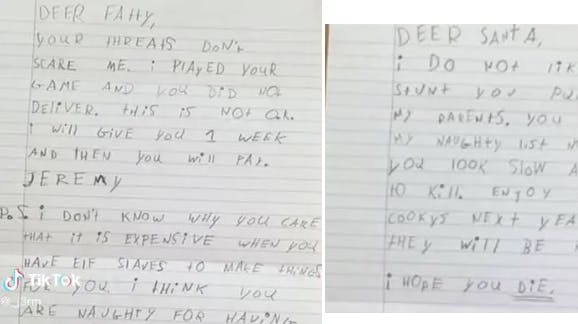 DEER FAttY,
YOUR tHREAtS DON't
SCARE ME. i PlAYED YOUR
GAME AND YOU DiD NOt
DEliVER. tHiS iS NOt OK.
i Will GiVE YOU 1 WEEK
AND tHEN YOU Will PAY.
JEREMY
P.S. i DON't KNOW WHY YOU CARE
tHAt it iS EXPENSiVE WHEN YOU
HAVE ElF SlAVES tO MAKE tHiNGS
FOR YOU. i tHiNK YOU
ARE NAUGHtY FOR HAViNG
TikTok
DEER SANtA,
i DO NOt liK
StUNt YOU PU
MY PARENtS. YOU
MY NAUGHtY liSt
YOU lOOK SlOW A
tO Kill. ENJOY
COOKYS NEXt YEA
tHEY Will BE
i HOPE YOU DIE.